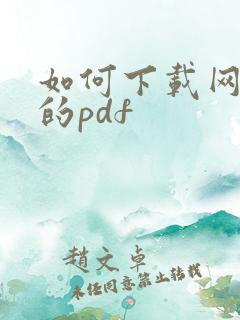 如何下載网
的pdf
趙文卓
未经同意禁止转载